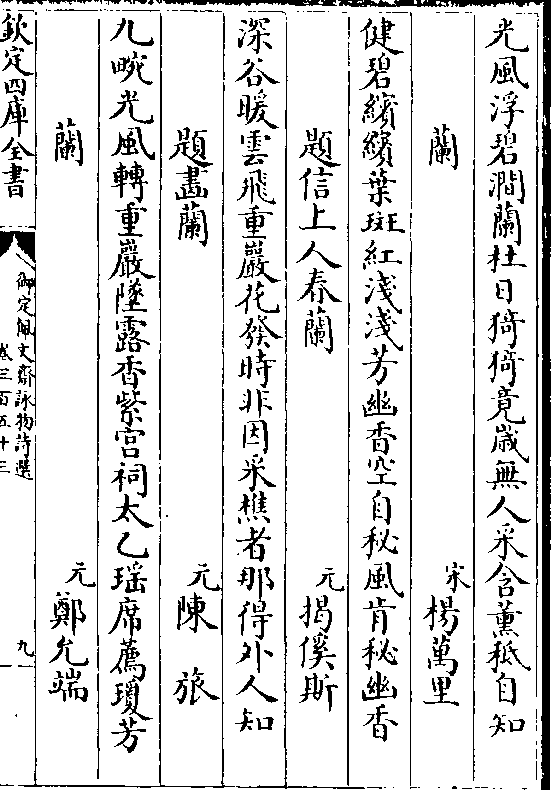 光風浮碧澗蘭杜日猗猗竟歳無人采含薫秪自知
蘭 宋楊萬里
健碧繽繽葉斑紅淺淺芳幽香空自秘風肯秘幽香
題信上人春蘭 元掲傒斯
深谷暖雲飛重巖花發時非因采樵者那得外人知
題畫蘭 元陳旅
九畹光風轉重巖墜露香紫宫祠太乙瑶席薦瓊芳
蘭 元鄭允端
欽定四庫全書
御定佩文齋詠物詩選
卷三百五十三
九